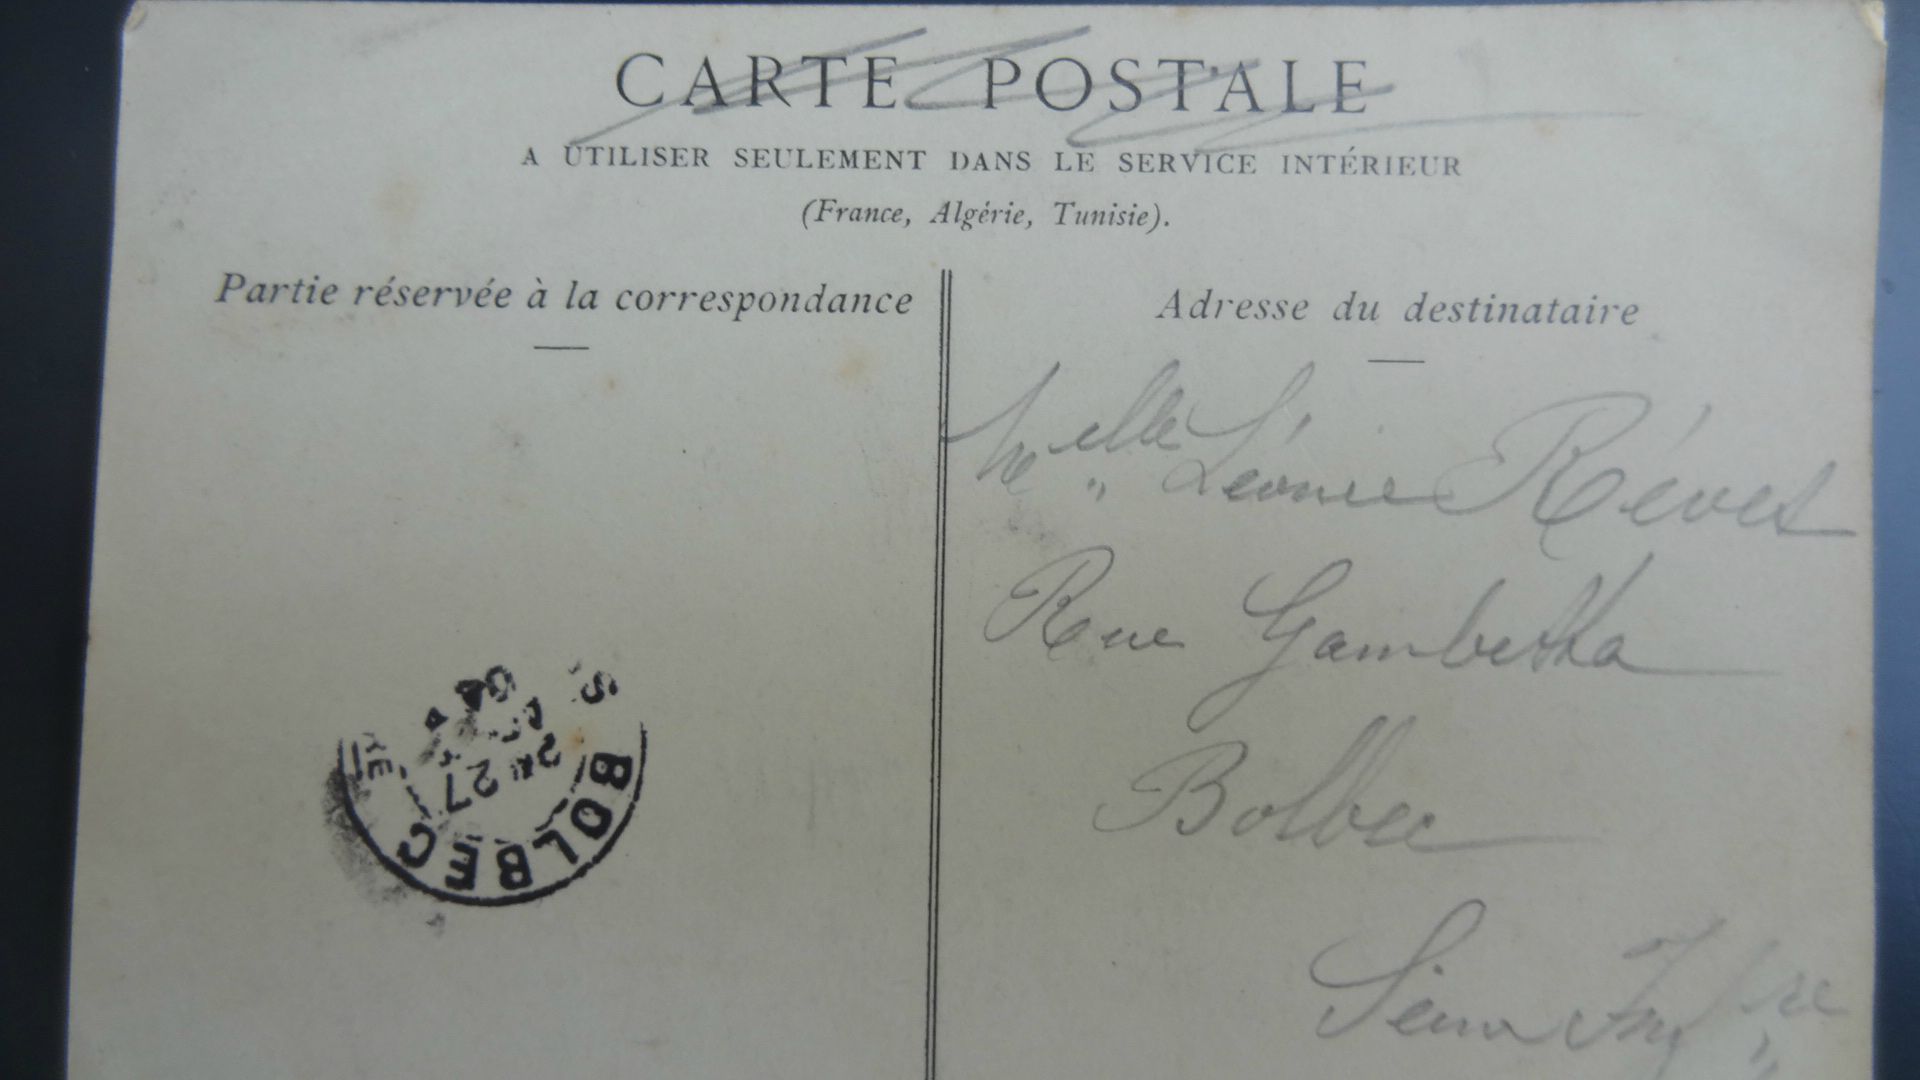 CARTE POSTALE
A UTILISER SEULEMENT DANS LE SERVICE INTÉRIEUR
(France, Algérie, Tunisie).
Partie réservée à la correspondance
Adresse du destinataire
Melle Léonie Révet
Rue Gambetta
Bolbec
Seine Infre
BOLBEC
27
04